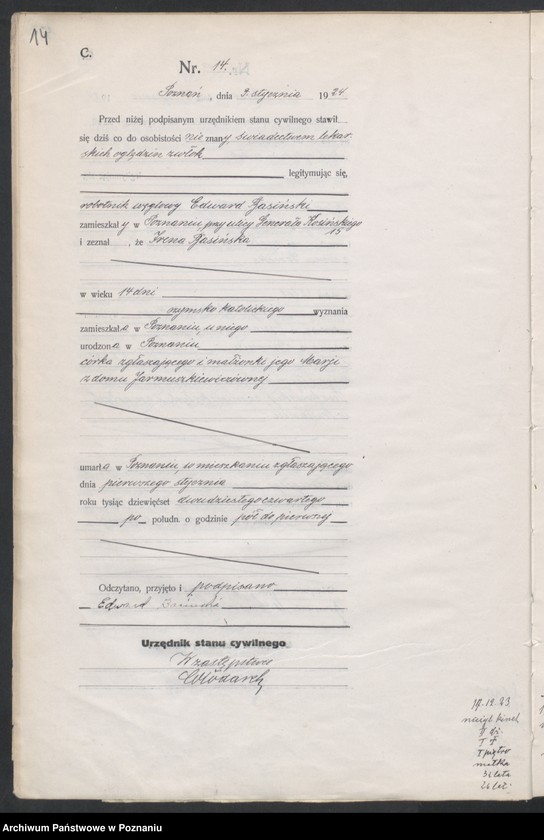 14
C.
Nr. 14.
Poznań, dnia 3. stycznia 1924
Przed niżej podpisanym urzędnikiem stanu cywilnego stawił
się dziś co do osobistości nieznany, świadectwem lekar-
skich oględzin zwłok
legitymując się,
robotnik węglowy Edward
zamieszkały w Poznaniu, przy ulicy Generała Kosińskiego
13
i zeznał, że Irena
w wieku 14 dni
rzymsko katolickiego wyznania
zamieszkała w Poznaniu, u niego
urodzona w Poznaniu
córka zgłaszającego i małżonki jego Marji
z domu Jarmuszkiewiczównej
umarła w Poznaniu, w mieszkaniu zgłaszającego
dnia pierwszego stycznia
roku tysiąc dziewięćset dwudziestego czwartego
po połudn. o godzinie pół do pierwszej
Odczytano, przyjęto i podpisano
Edward
Urzędnik stanu cywilnego
W zastępstwie
matka
31 lata
26 lat
Archiwum Państwowe w Poznaniu